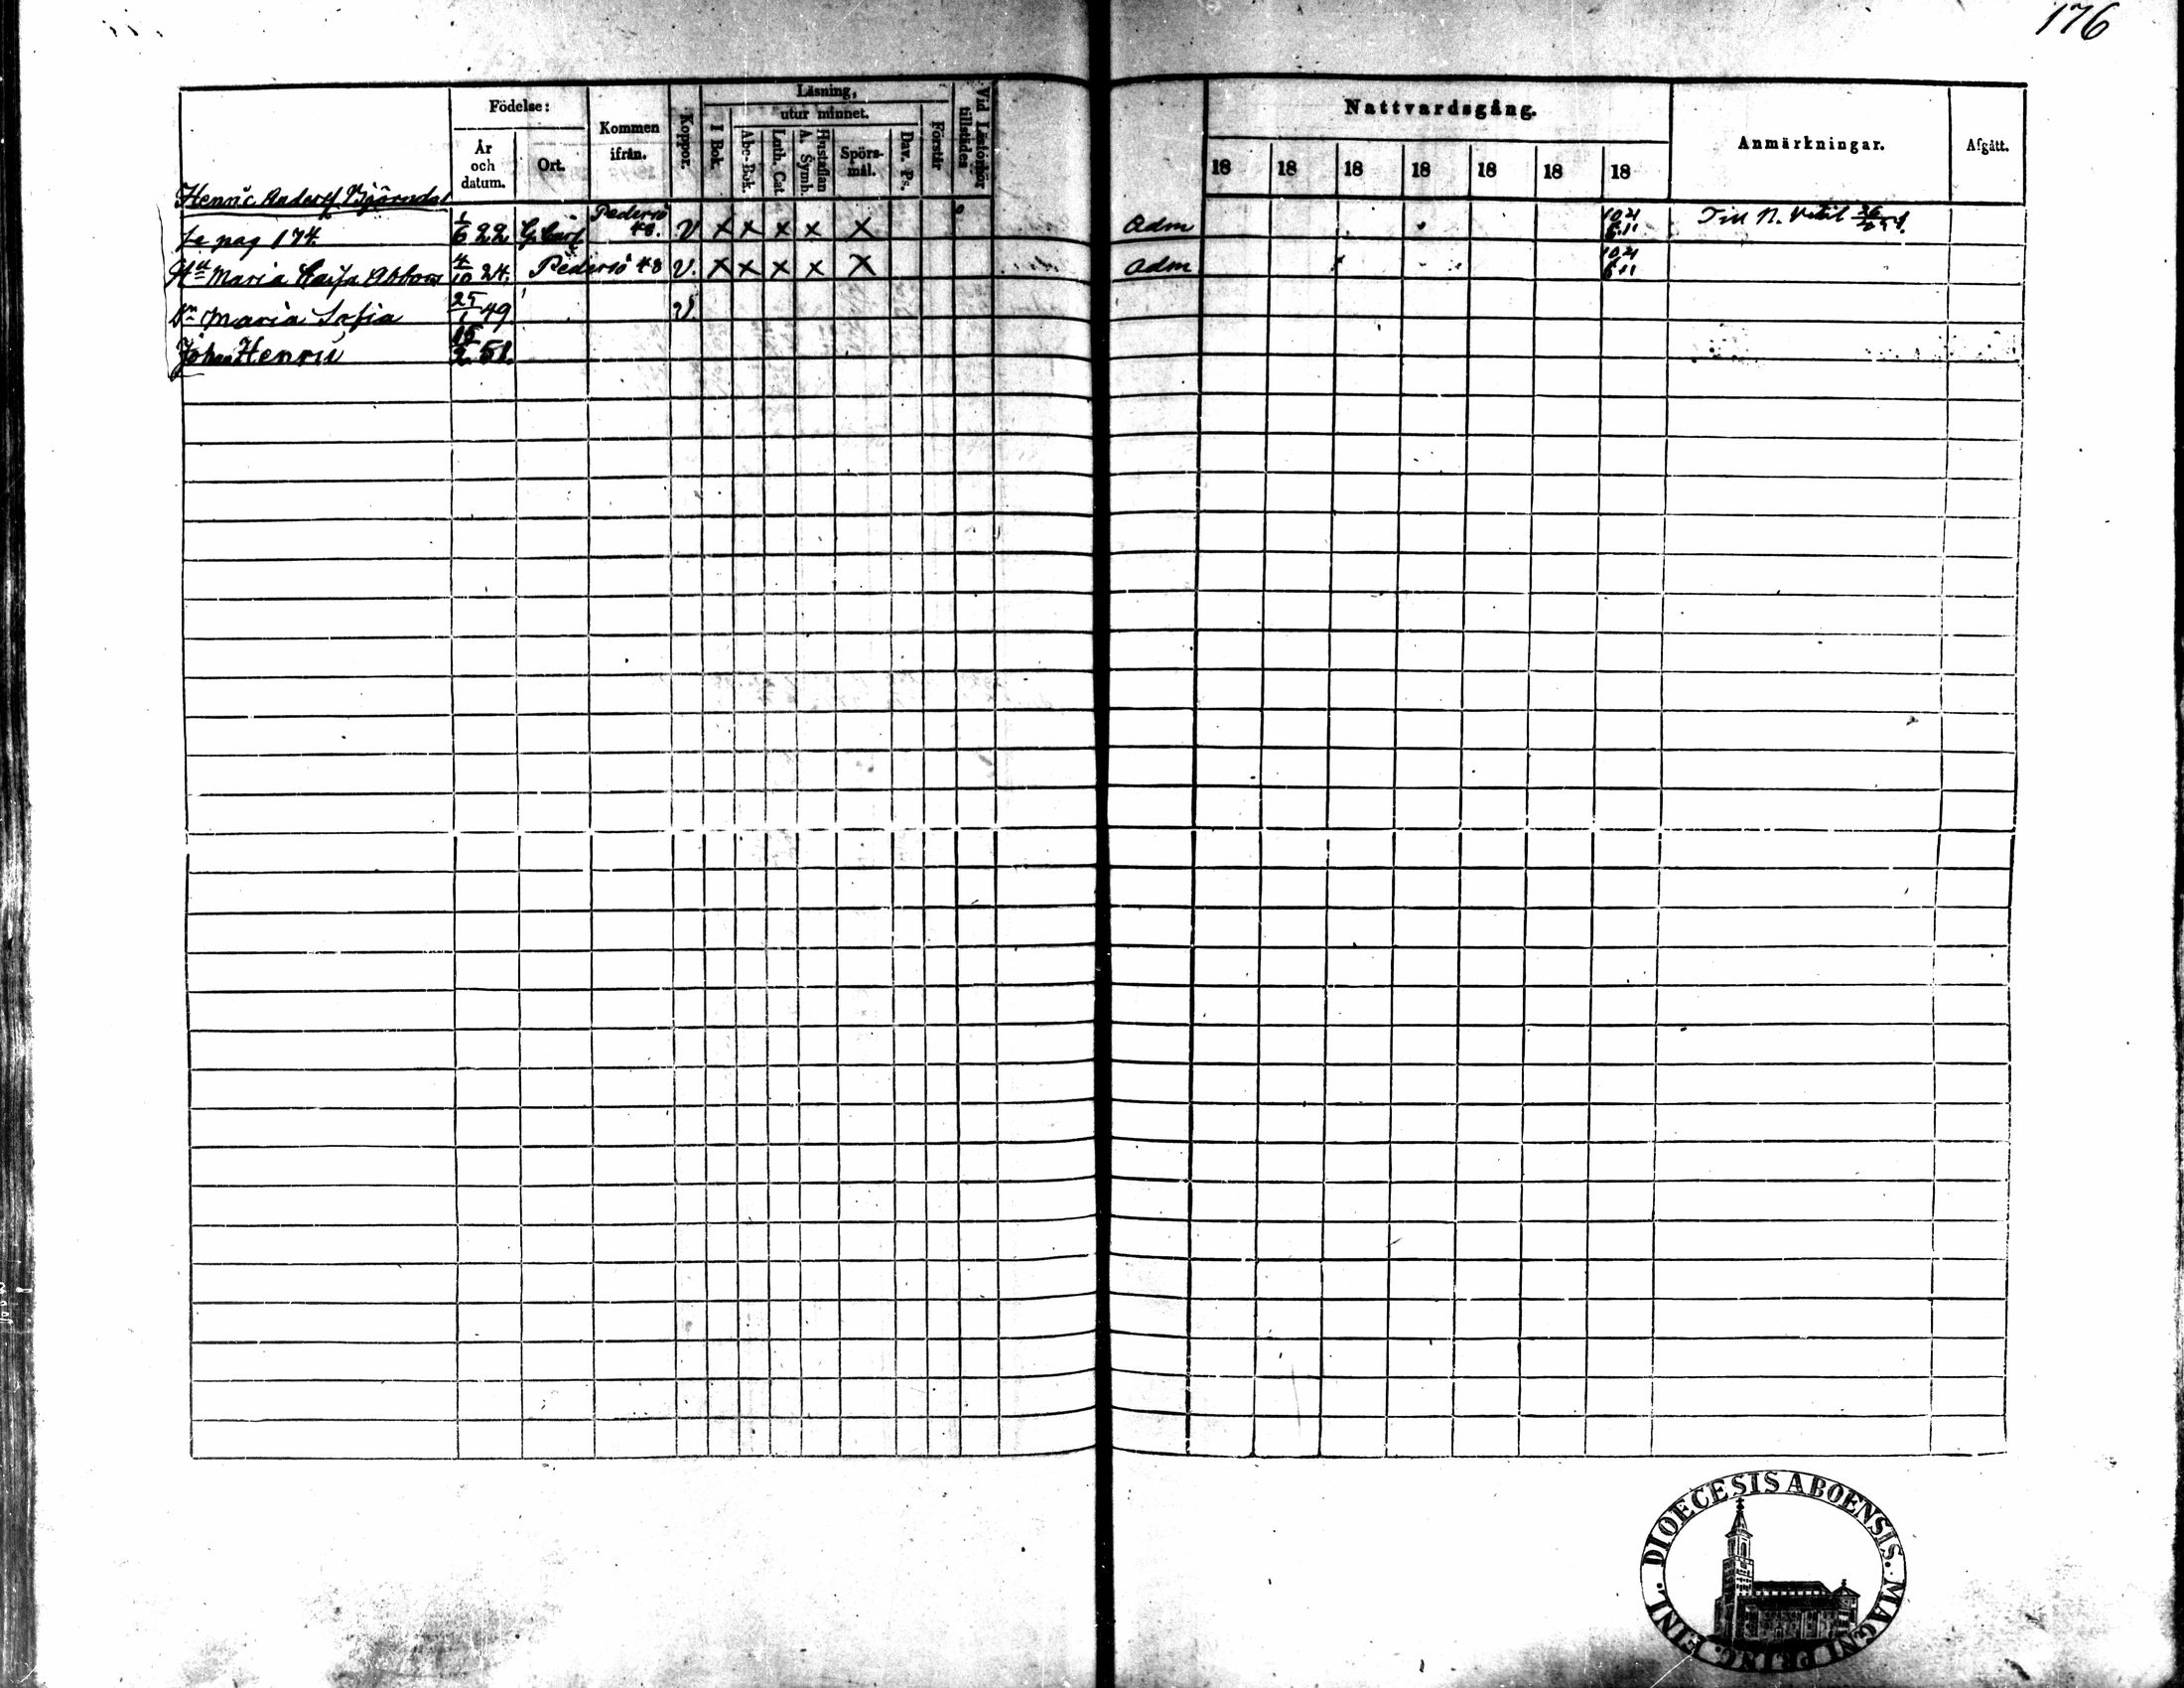 176
Födelse:
År och datum.
Ort.
Kommen ifrån.
Koppor.
Läsning,
utur minnet.
I Bok.
Abc-Bok.
Luth. Cat.
Hustaflan A. Symb.
Spörs-mål.
Dav. Ps.
Förstår
Vid Läsförhör tillstädes
Nattvardsgång.
18 18 18 18 18 18 18
Anmärkningar.
Afgått.
Henric Anders Björndal
se pag 174. 1/6 22 G. Carl Pedersö 48. V X X X X X Adm 10 21 6 11 Till N. Vetil
Hu Maria Caisa 4/10 24. Pedersö 48 V. X X X X X Adm 10 21 6 11
Dr Maria Sofia 25/1 49 V.
Johan Henric 15/2 51.
DIOECESIS ABOENSIS. MAGNI PRINC. FINL.